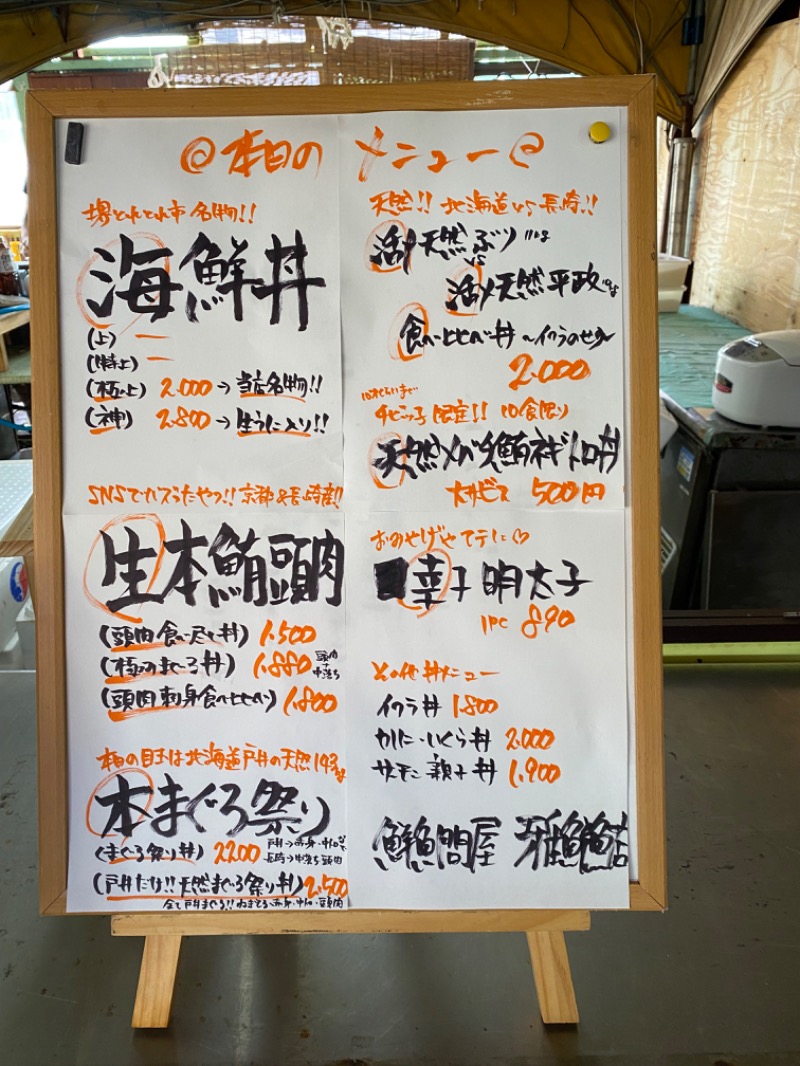 @本日の メニュー@
堺とれとれ市 名物!!
海鮮丼
(上) ー
(特上) ー
(極上) 2.000→当店名物!!
(神) 2.800→生うに入り!!
SNSでバズったやつ!! 京都&長崎産!!
生本鮪頭肉
(頭肉食べ尽し丼) 1.500
(極のまぐろ丼) 1.880 頭肉+中落ち
(頭肉刺身食べ比べ) 1.800
本日の目玉は北海道戸井の天然193kg
本まぐろ祭り
(まぐろ祭り丼) 2200
(戸井だけ!!天然まぐろ祭り丼) 2.500
全て戸井まぐろ!! ねぎとろ・赤身・中トロ・頭肉
天然!! 北海道vs長崎!!
活〆天然ぶり
vs
活〆天然平政
食べ比べ丼 〜イクラのせ〜
2.000
10才ぐらいまで
チビっ子限定!! 10食限り
天然メバチ鮪ネギトロ丼
大サービス 500円
おみやげやアテに♡
幸子明太子
1PC 890
その他丼メニュー
イクラ丼 1.800
かに・いくら丼 2.000
サーモン親子丼 1.900
鮮魚問屋